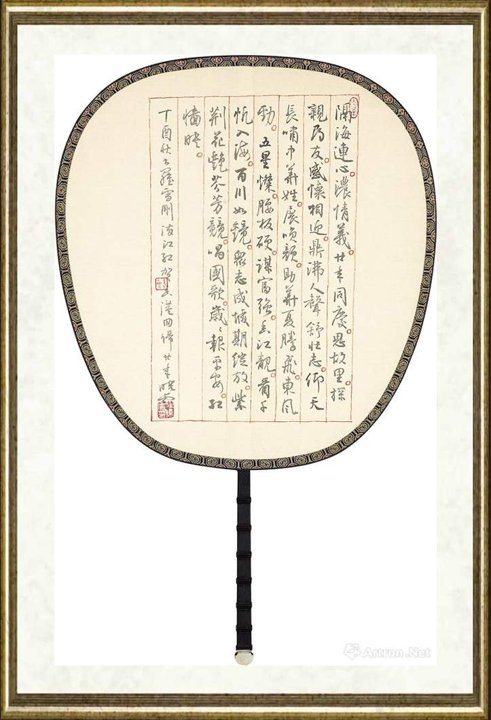 海連心。濃情義。廿年同慶。思故里探
親友。盛懷相迎。鼎沸人聲舒壯志。仰天
長嘯華姓。展顏助華夏騰飛。東風
勁。五星燦。腰板碩。謀富強。香江靚。
帆入海。百川如鏡。眾志成城期綻放。紫
荊花艷芬芳競。唱國歌歲歲報平安。紅
映。
丁酉秋羅雪剛滿江紅賀香港回歸廿年曉
Artron.Net